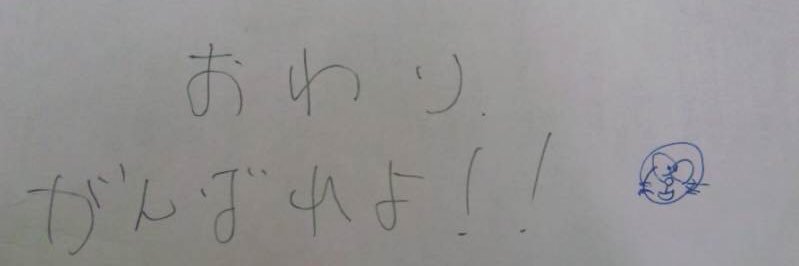 おわり.
がんばれよ!!